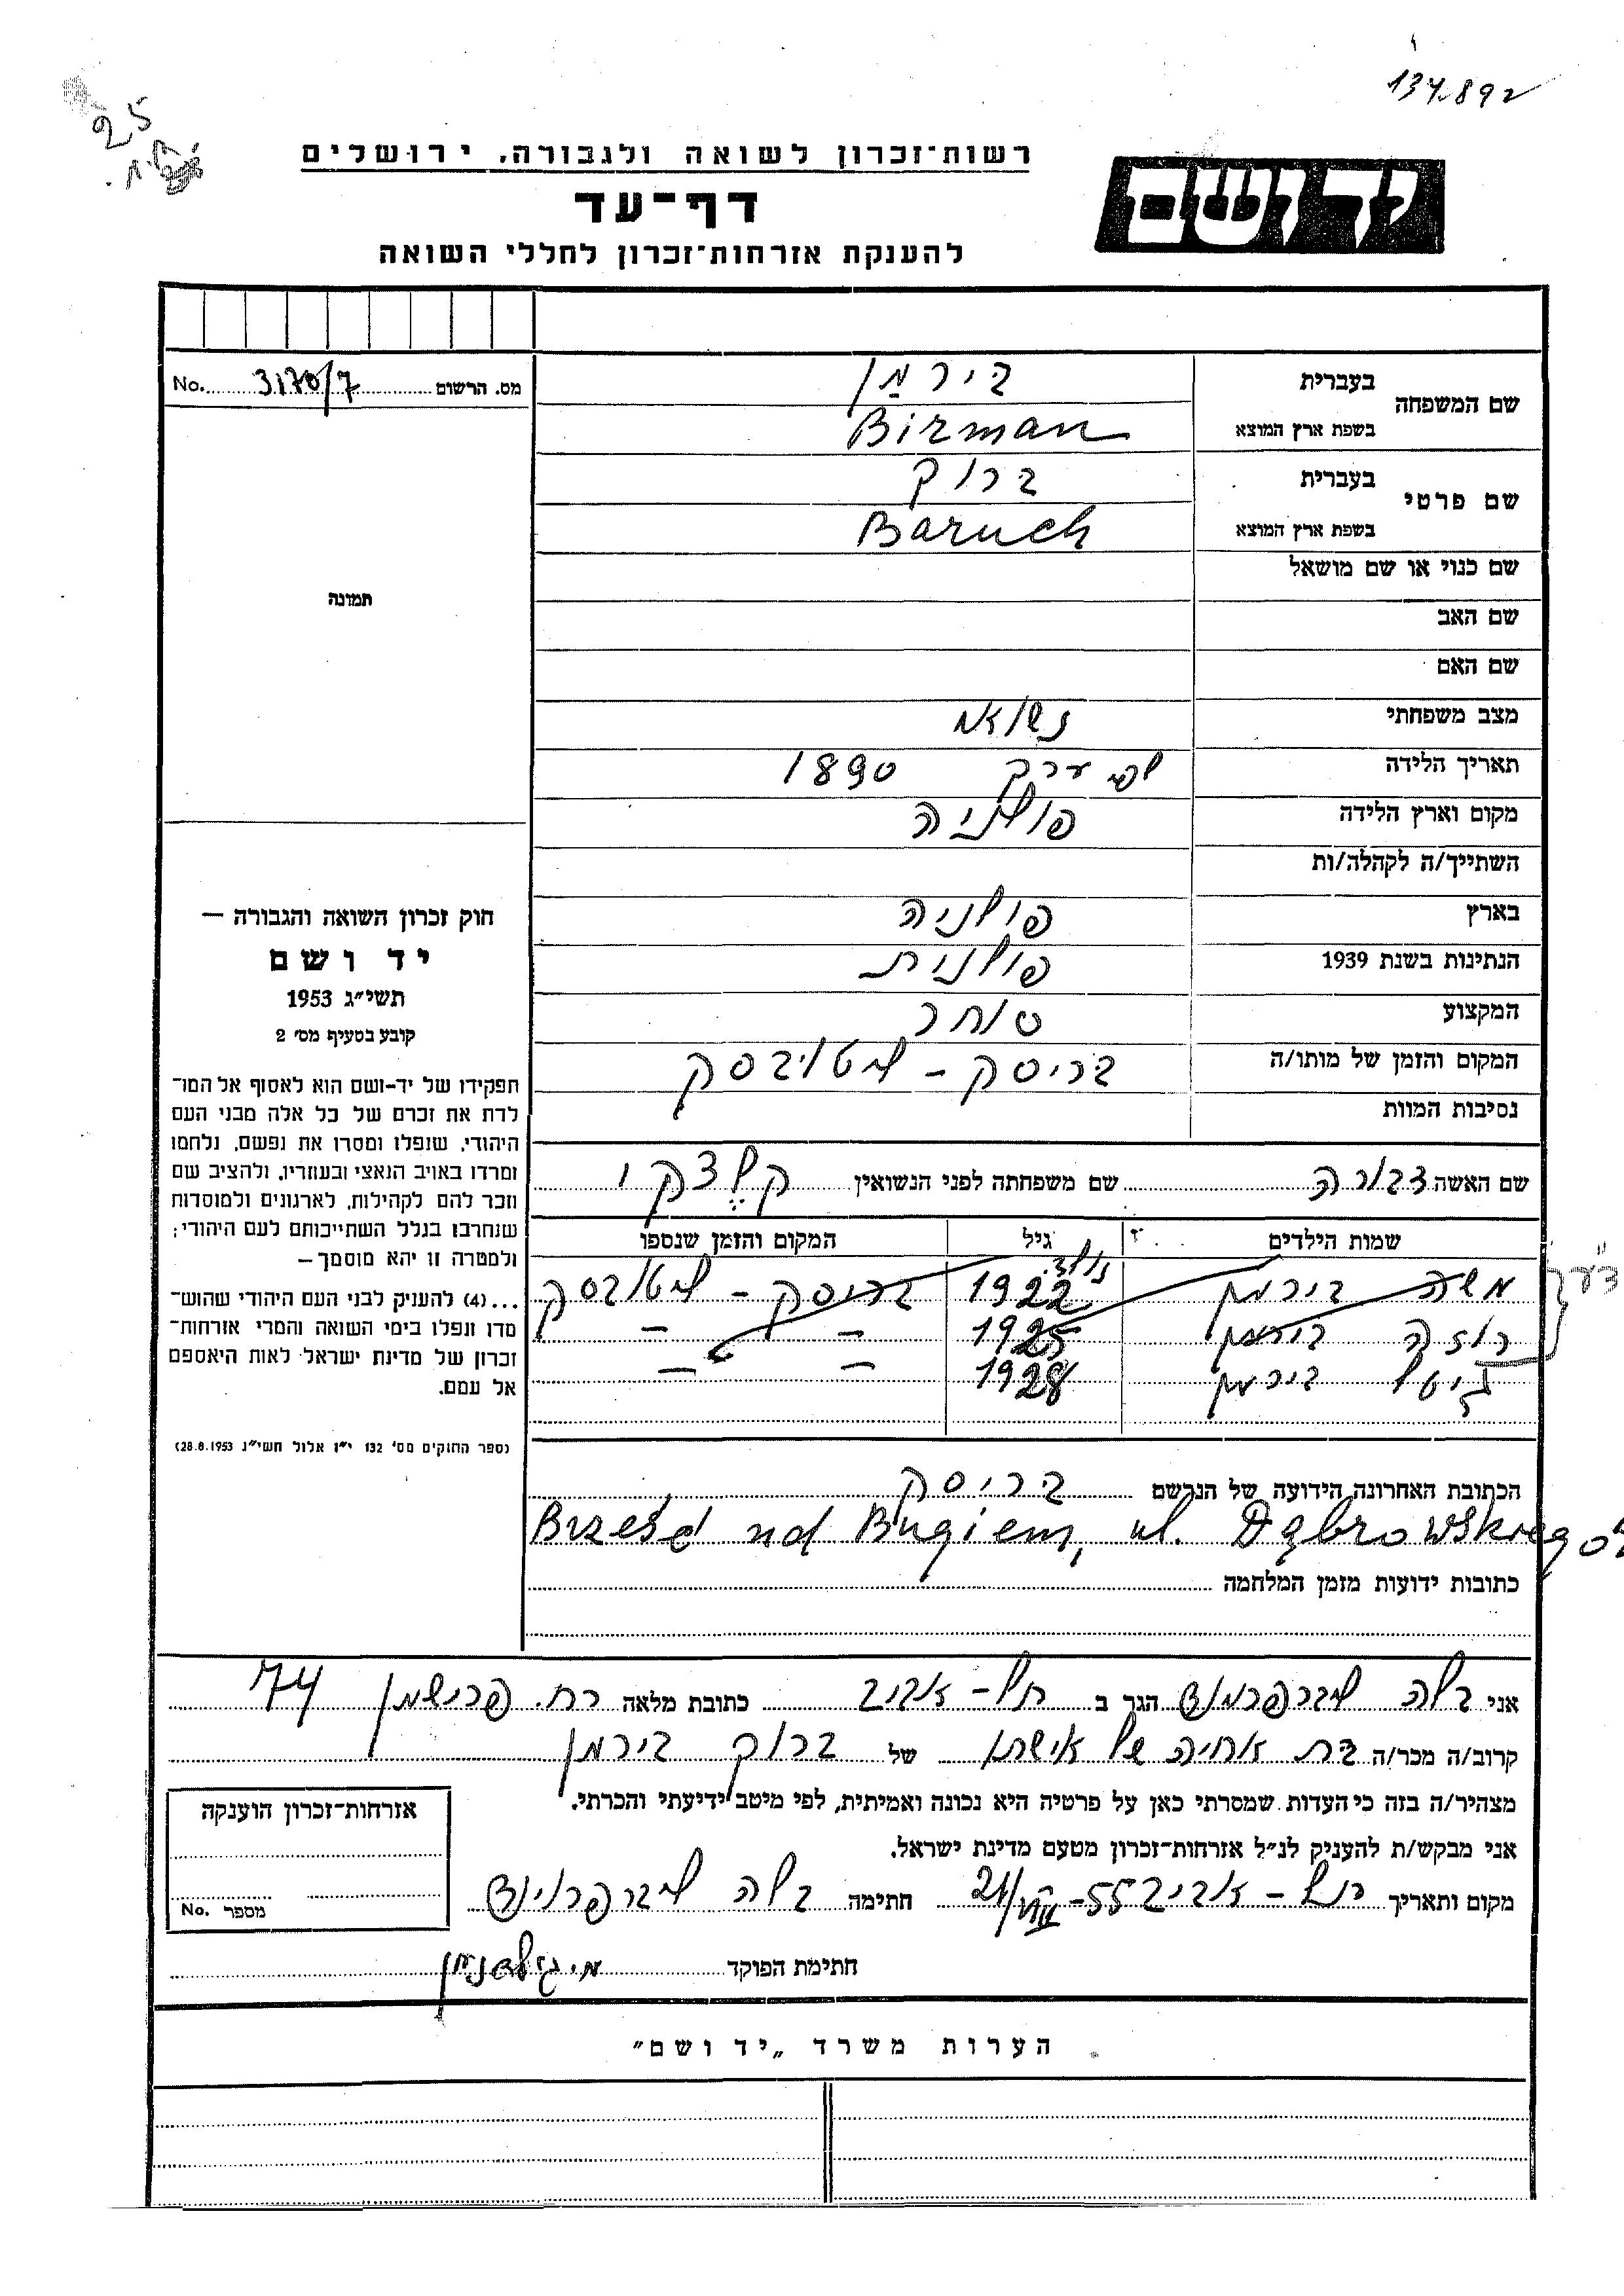 134892
25
רשות־זכרון לשואה ולגבורה. ירושלים
יד ושם
דף־עד
להענקת אזרחות־זכרון לחללי השואה
מס. הרשום 3170/7 No.
שם המשפחה בעברית בירמן
בשפת ארץ המוצא Birman
שם פרטי בעברית ברוך
בשפת ארץ המוצא Baruch
שם כנוי או שם מושאל
תמונה
שם האב
שם האם
מצב משפחתי נשוא
תאריך הלידה לפי ערך 1890
מקום וארץ הלידה פולניה
השתייך/ה לקהלה/ות
בארץ פולניה
הנתינות בשנת 1939 פולנית
המקצוע סוחר
המקום והזמן של מותו/ה בריסק - ליטובסק
נסיבות המוות
חוק זכרון השואה והגבורה —
יד ושם
תשי״ג 1953
קובע בסעיף מס׳ 2
תפקידו של יד-ושם הוא לאסוף אל המו־
לדת את זכרם של כל אלה מבני העם
היהודי, שנפלו ומסרו את נפשם, נלחמו
ומרדו באויב הנאצי ובעוזריו, ולהציב שם
וזכר להם לקהילות, לארגונים ולמוסדות
שנחרבו בגלל השתייכותם לעם היהודי;
ולמטרה זו יהא מוסמך—
...(4) להעניק לבני העם היהודי שהוש־
מדו ונפלו בימי השואה והמרי אזרחות־
זכרון של מדינת ישראל לאות היאספם
אל עמם.
(ספר החוקים מס׳ 132 י״ז אלול תשי״ג 28.8.1953)
שם האשה דבורה שם משפחתה לפני הנשואין
שמות הילדים גיל המקום והזמן שנספו
נולד
משה בירמן 1922 בריסק - ליטובסק
רוזה בירמן 1925 — —
גיטל בירמן 1928 — —
הכתובת האחרונה הידועה של הנרשם בריסק
Brześć nad Bugiem, ul. Dąbrowskiego
כתובות ידועות מזמן המלחמה
אני בלה הגר ב תל-אביב כתובת מלאה רח. פרישמן 74
קרוב/ה מכר/ה בת אחיה של אישתו של ברוך בירמן
מצהיר/ה בזה כי העדות שמסרתי כאן על פרטיה היא נכונה ואמיתית, לפי מיטב ידיעתי והכרתי.
אני מבקש/ת להעניק לנ״ל אזרחות־זכרון מטעם מדינת ישראל.
מקום ותאריך תל-אביב 55 חתימה בלה
חתימת הפוקד
אזרחות־זכרון הוענקה
מספר No.
הערות משרד „יד ושם״